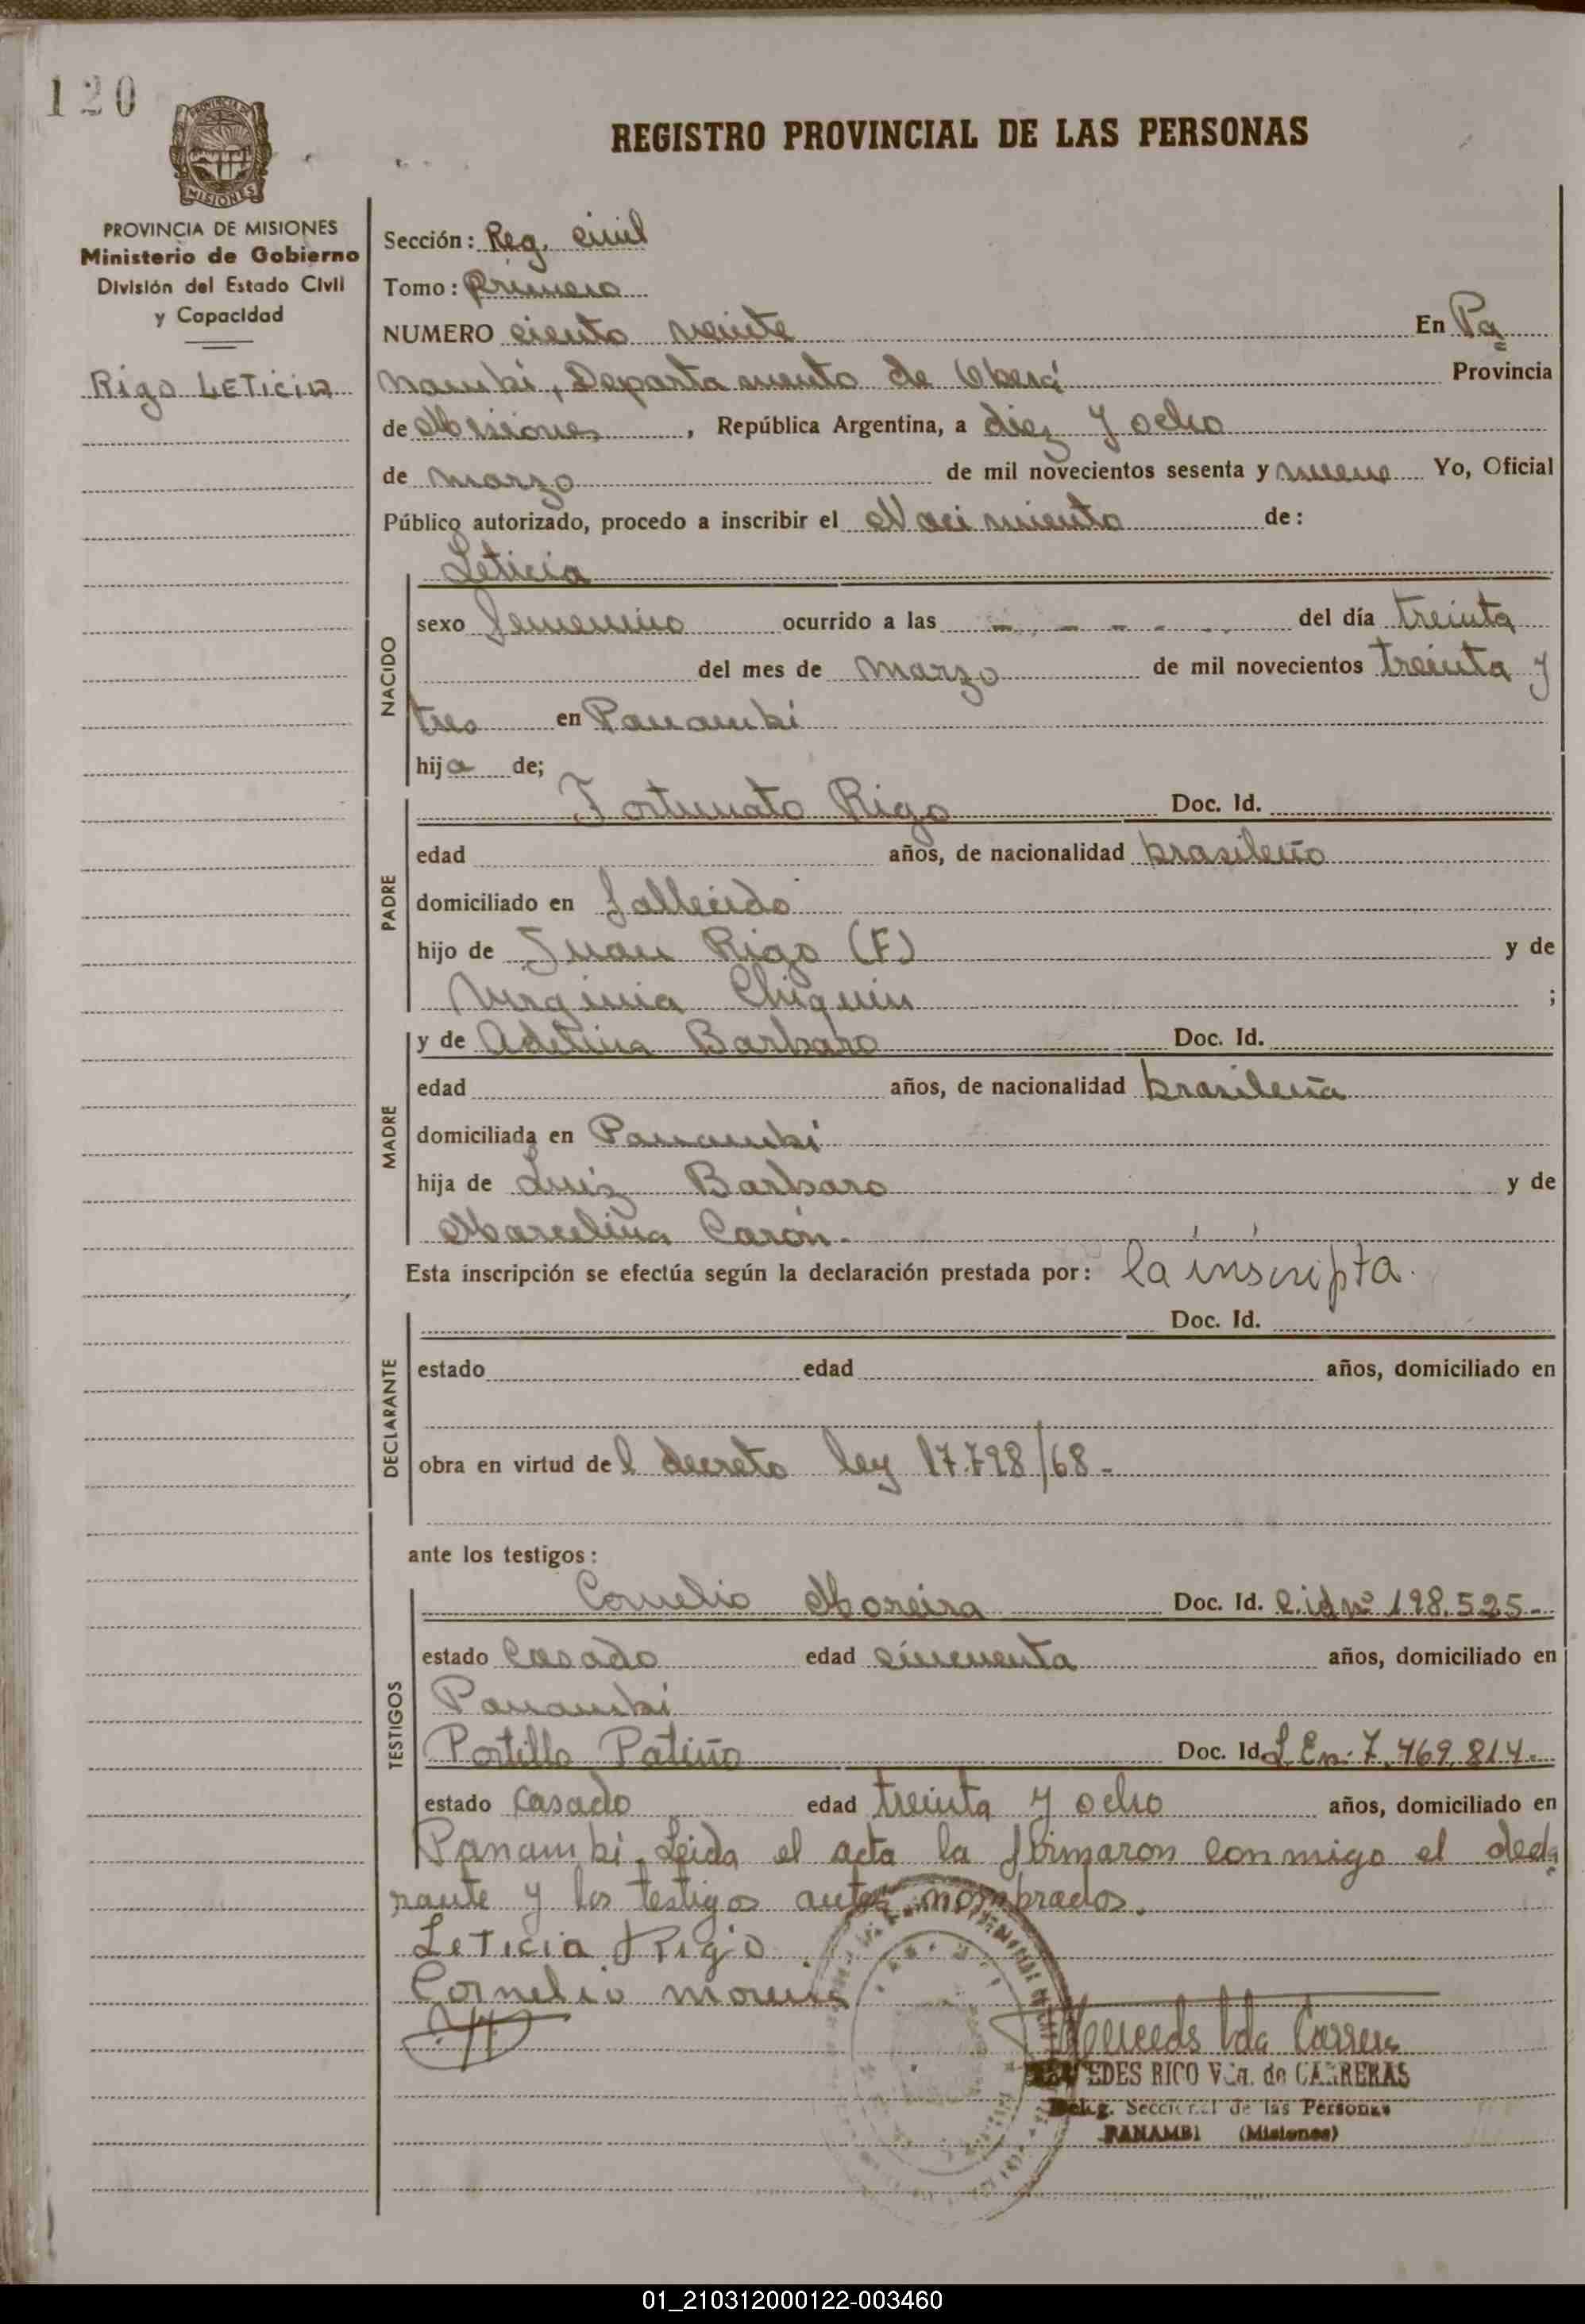 120
REGISTRO PROVINCIAL DE LAS PERSONAS
MISIONES
PROVINCIA DE MISIONES
Ministerio de Gobierno
División del Estado Civil
y Capacidad
Rigo LETICIA
Sección: Reg. civil
Tomo: Primero
NUMERO ciento veinte En Pa
nambi, Departamento de Oberá Provincia
de Misiones, República Argentina, a diez y ocho
de marzo de mil novecientos sesenta y nueve Yo, Oficial
Público autorizado, procedo a inscribir el Nacimiento de:
NACIDO
Leticia
sexo femenino ocurrido a las - - - - - del día treinta
del mes de marzo de mil novecientos treinta y
tres en Panambi
hija de;
PADRE
Fortunato Rigo Doc. Id.
edad años, de nacionalidad brasileño
domiciliado en fallecido
hijo de Juan Rigo (F) y de
Virginia Chiquin ;
MADRE
y de Adelina Barbaro Doc. Id.
edad años, de nacionalidad brasileña
domiciliada en Panambi
hija de Luiz Barbaro y de
Marcelina Carón.
Esta inscripción se efectúa según la declaración prestada por: la inscripta.
DECLARANTE
Doc. Id.
estado edad años, domiciliado en
obra en virtud del decreto ley 17.798/68-
ante los testigos:
TESTIGOS
Cornelio Moreira Doc. Id. C.id nº 198.525-
estado Casado edad cincuenta años, domiciliado en
Panambi
Portillo Patiño Doc. Id. L En. 7.469.814.
estado casado edad treinta y ocho años, domiciliado en
Panambi. Leida el acta la firmaron conmigo el decla
rante y los testigos antes nombrados.
Leticia Rigo
Cornelio moreira
EDES RICO Vda. de CARRERAS
Deleg. Seccional de las Personas
PANAMBI (Misiones)
01_210312000122-003460